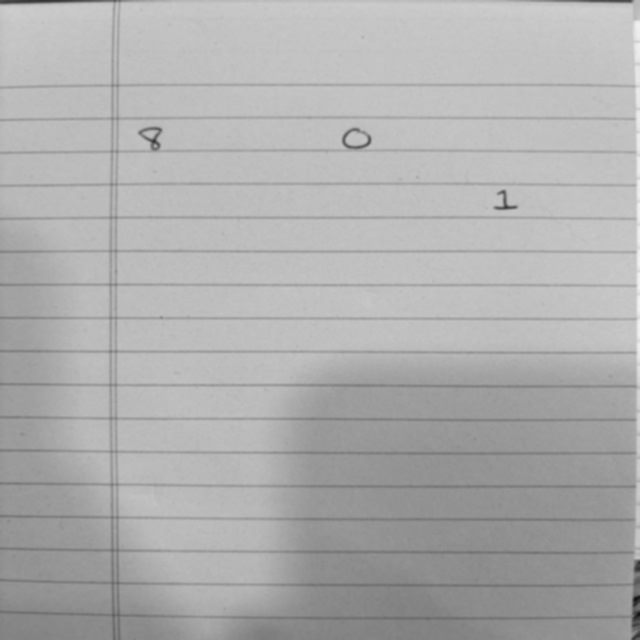 8 0
1